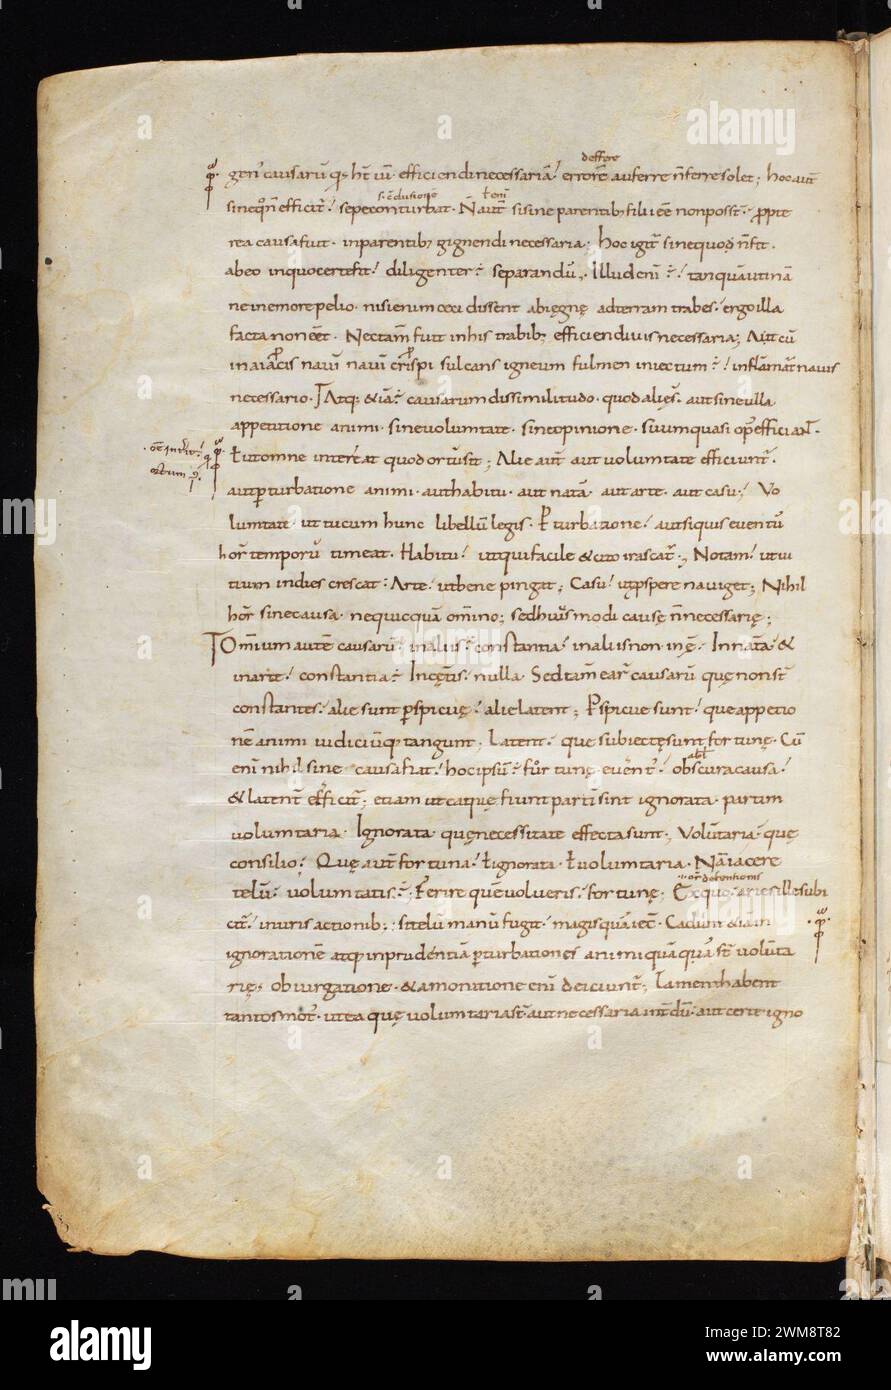 deffere
gen' causarū q; ht̄ uī efficiendi necessariā errorē auferre n̄ ferre solet; hoc aut̄
sine q̊ n̄ efficit̄ sepe conturbat. N̄ aut̄ si sine parentib; filii eē non poss̄t ppte
rea causa fuit inparentib; gignendi necessaria; hoc igit̄ sine quod n̄ fit
ab eo in quo certe fit diligenter ē separandū. Illud enī ē tanquā utinā
ne in nemore pelio nisi enim cecidissent abięgnę ad terram trabes ergo illa
facta non eēt. Nec tam̄ fuit in his trabib; efficiendi uis necessaria; At cū
in aiacis nauī crispi sulcans igneum fulmen iniectum ē inflāmat̄ nauis
necessario. Atq; & iā ē causarum dissimilitudo quod alię s̄ aut sine ulla
appetitione animi sine uoluntate sine opinione suum quasi op' efficiant.
ł ut omne intereat quod ort' sit; Alie aut̄ aut uoluntate efficiunt̄
aut pturbatione animi aut habitu aut natā aut arte aut casu; Vo
luntate ut tu cum hunc libellū legis. Pturbatione aut si quis euentū
hor' temporū timeat. Habitu ut qui facile & cito irascat̄; Notam ut ui
tium indies crescat; Arte ut bene pingat; Casu ut pspere nauiget; Nihil
hor' sine causa nequicquā omīno; sed hui'modi causę n̄ necessarię;
Omnium autē causarū in aliis ē constantia in aliis non inē. In nata &
in arte constantia ē In cętis nulla Sed tam̄ ear' causarū quę non s̄t
constantes alie sunt pspicuę alie latent; Pspicue sunt que appetio
nē animi iudiciūq; tangunt. Latent que subiectę sunt fortunę. Cū
enī nihil sine causa fiat hoc ipsū ē fortunę euent' obscura causa
& latent̄ efficit̄; etiam ut ea quę fiunt partī sint ignorata partim
uoluntaria. Ignorata quę necessitate effecta sunt; Volūtaria quę
consilio; Quę aut̄ fortuna ł ignorata ł uoluntaria. Nā iacere
telū uoluntatis ē; Ferire quē nolueris fortunę; Ex quo aries ille subi
cit̄ in uris actionib; si telū manū fugit magis quā iecit. Cadunt & iā in
ignorationē atq; inprudentiā pturbationes animi quā quā s̄t volūta
rię; obiurgatione & amonitione enī deiciunt̄; tamen habent
tantos mot' ut ea quę uoluntaria s̄t aut necessaria int̄dū aut certe igno
alamy
Image ID: 2WM8T82
www.alamy.com